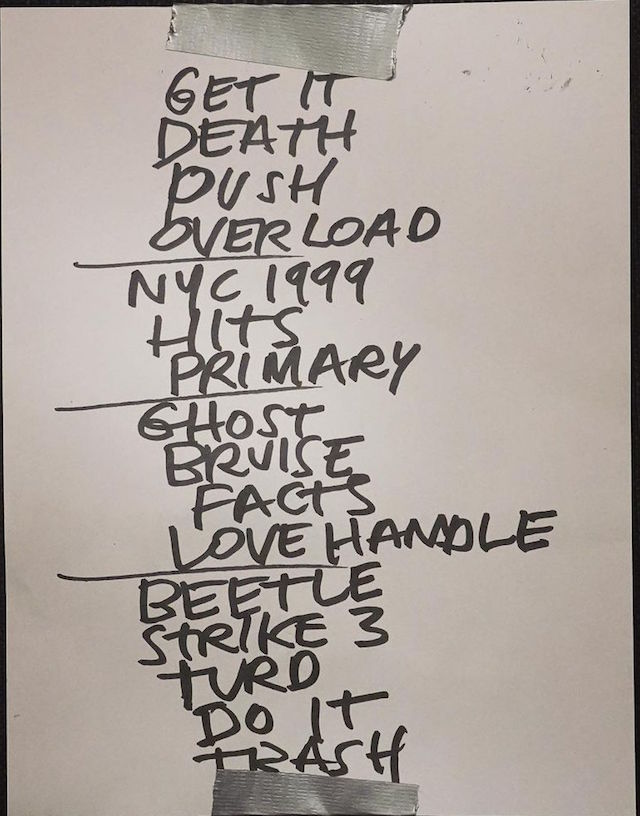 GET IT
DEATH
PUSH
OVERLOAD
NYC 1999
HITS
PRIMARY
GHOST
BRUISE
FACTS
LOVE HANDLE
BEETLE
STRIKE 3
TURD
DO IT
TRASH